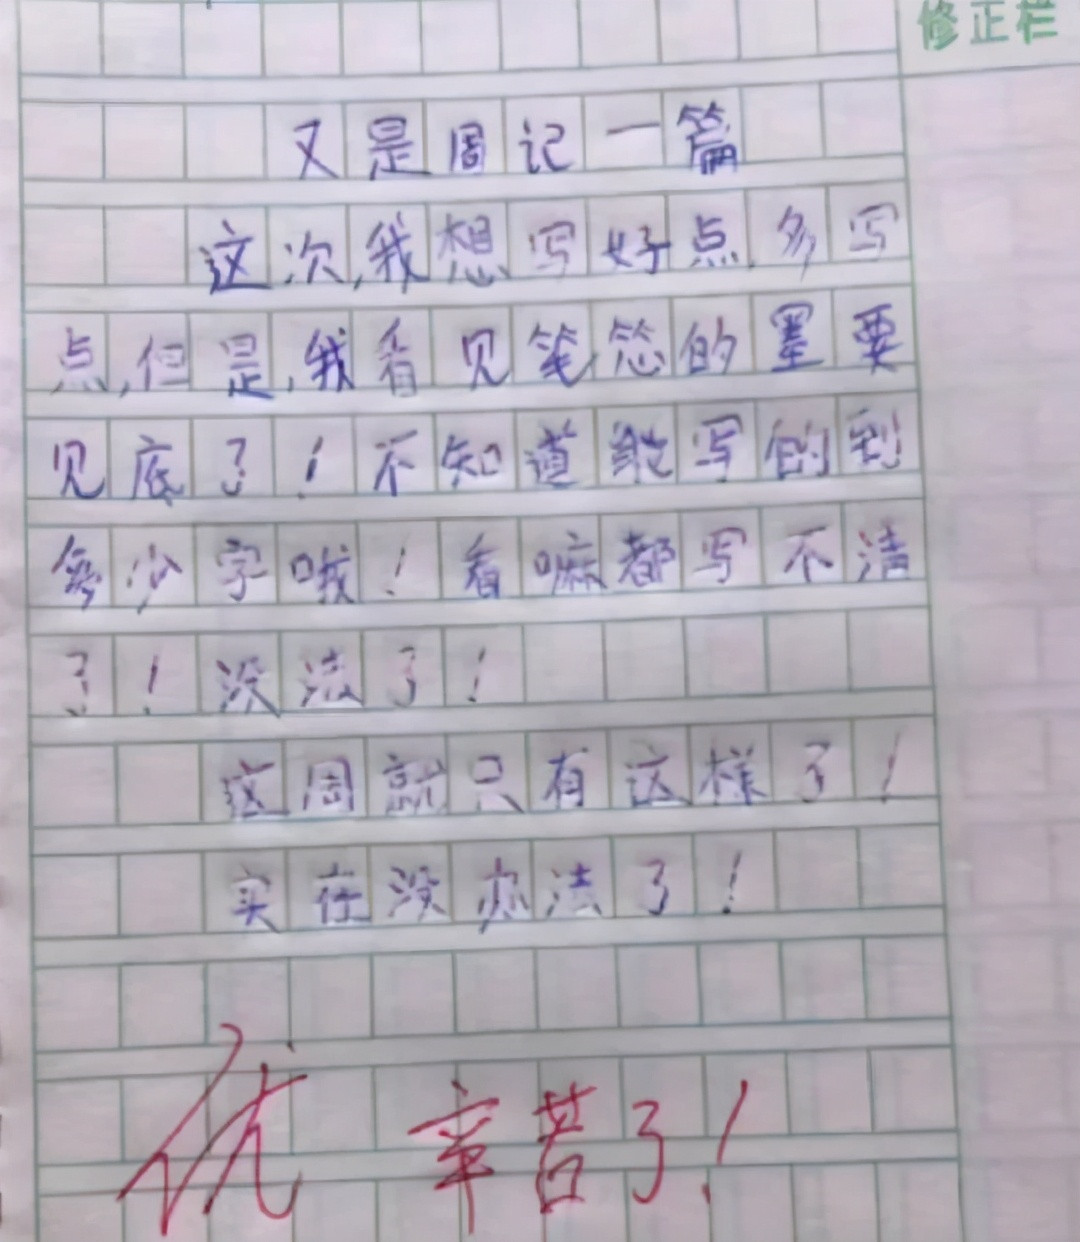 修正栏
又是周记一篇
这次,我想写好点,多写
点,但是,我看见笔芯的墨要
见底了!不知道能写的到
多少字哦!看嘛都写不清
了!没法了!
这周就只有这样了!
实在没办法了!
优 辛苦了!